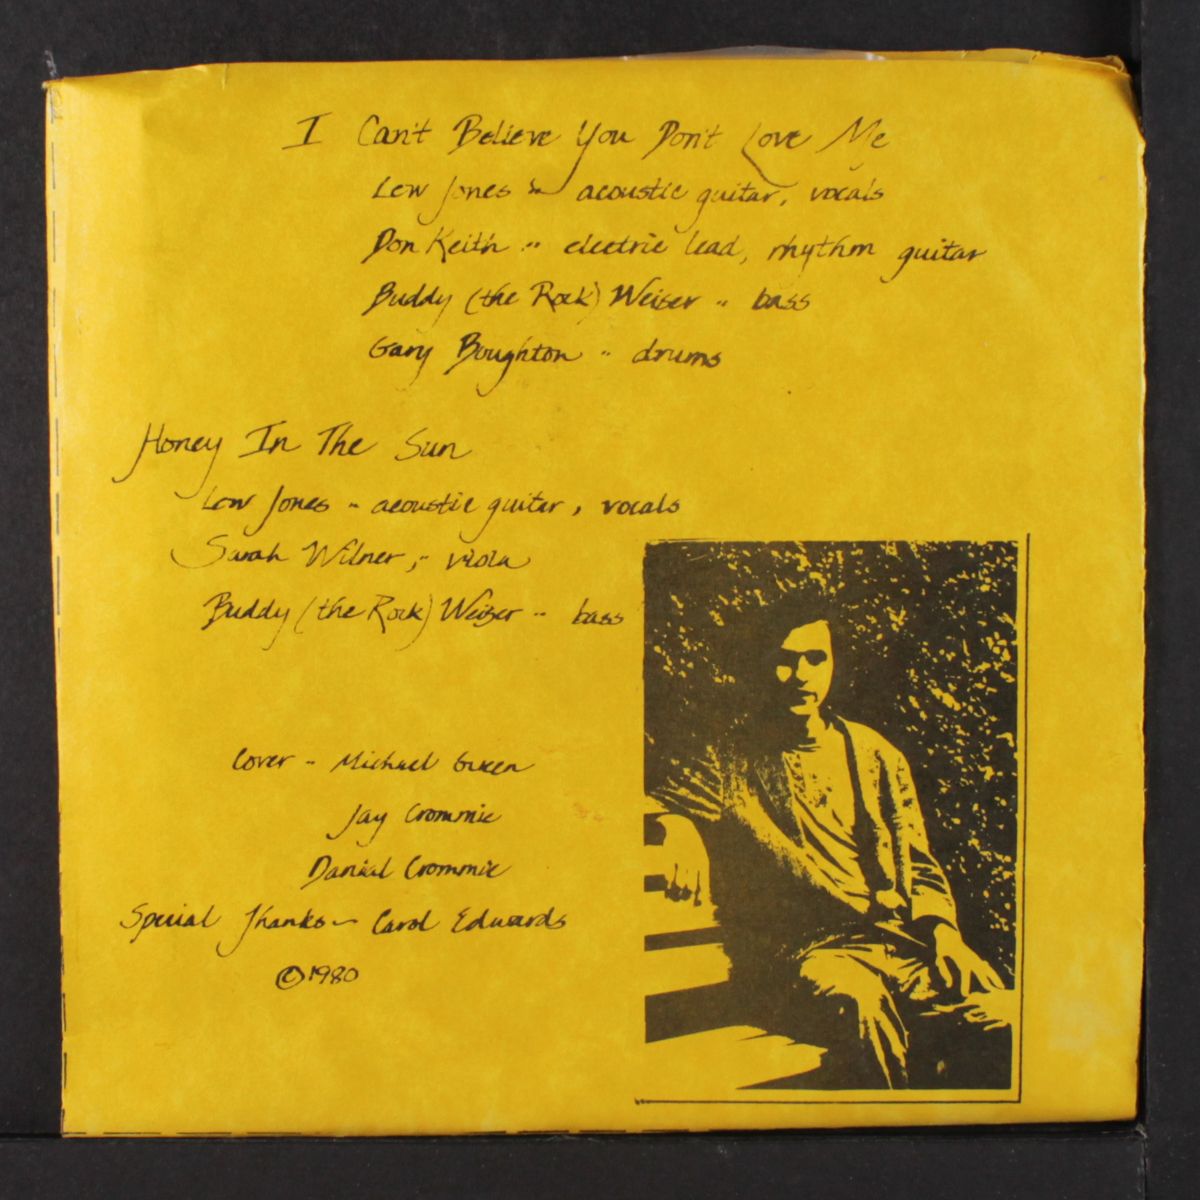 I Can't Believe You Don't Love Me
Lew Jones - acoustic guitar, vocals
Don Keith - electric lead, rhythm guitar
Buddy (the Rock) Weiser - bass
Gary Boughton - drums
Honey In The Sun
Lew Jones - acoustic guitar, vocals
Sarah Wilner, - viola
Buddy (the Rock) Weiser - bass
Cover - Michael Green
Jay Crommie
Danial Crommie
Special Thanks - Carol Edwards
©1980